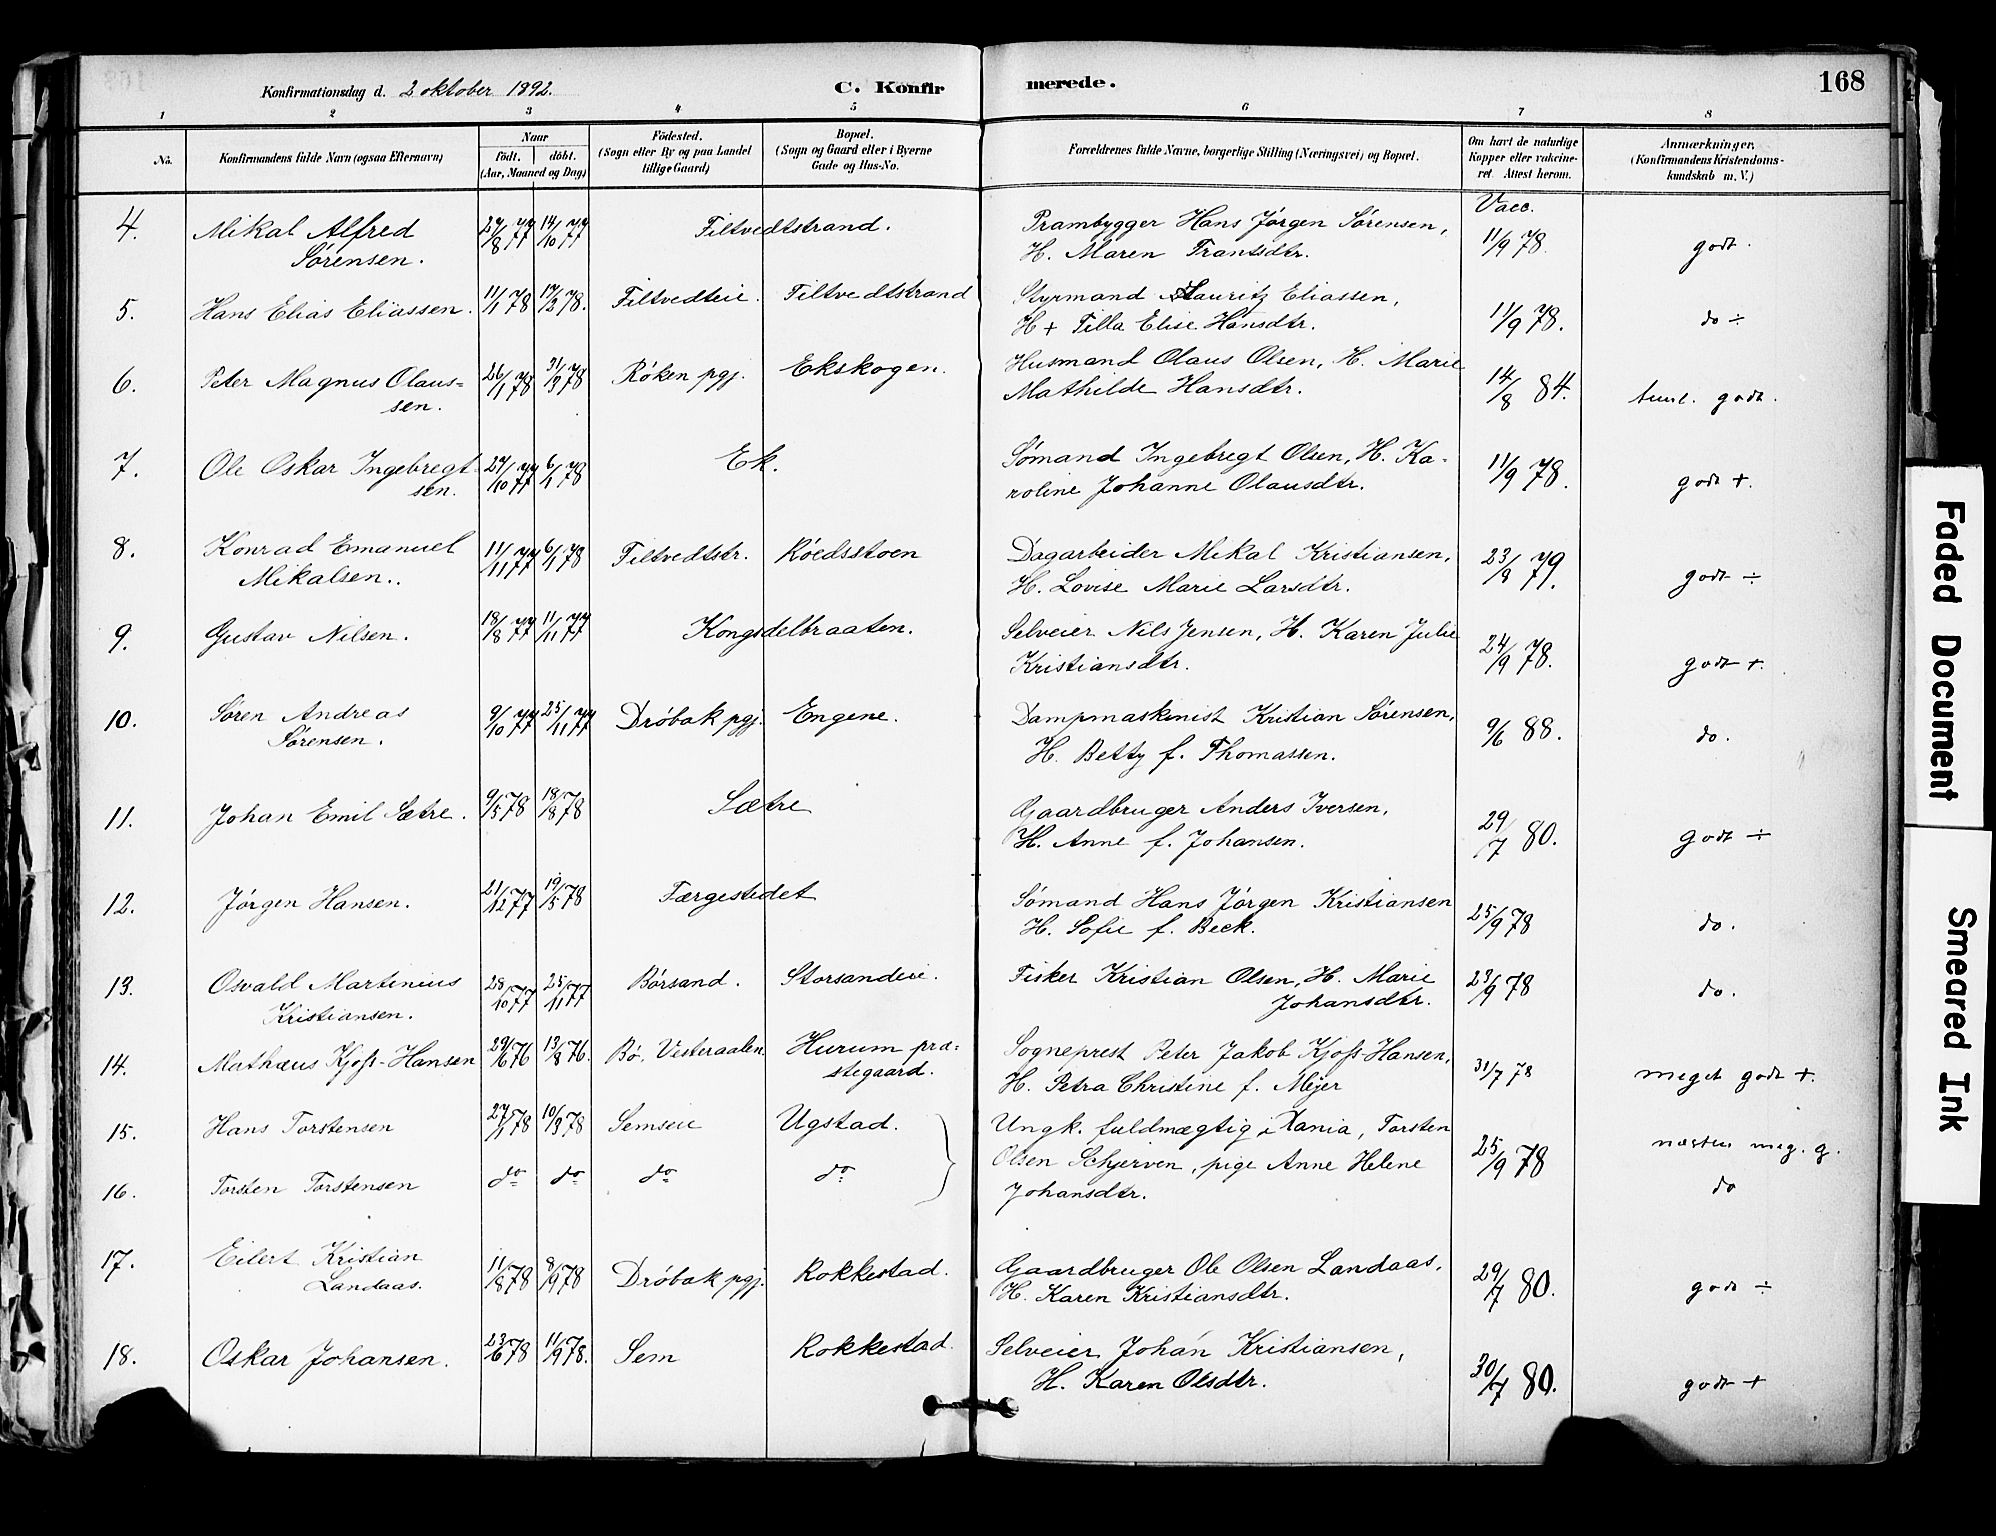 Konfirmationsdag d. 2 oktober 1892. C. Konfirmerede. 168
1 2 3 4 5 6 7 8
No. Konfirmandens fulde Navn (ogsaa Efternavn) Naar født. døbt. (Aar, Maaned og Dag) Fødested. (Sogn eller By og paa Landet tillige Gaard) Bopæl. (Sogn og Gaard eller i Byerne Gade og Hus-No. Forældrenes fulde Navne, borgerlige Stilling (Næringsvei) og Bopæl. Om havt de naturlige Kopper eller vakcineret. Attest herom. Anmærkninger, (Konfirmandens Kristendomskundskab m. V.)
Vacc.
4. Mikal Alfred Sørensen. 27/8 77 14/10 77 Filtvedtstrand. Prambygger Hans Jørgen Sørensen, H. Maren Frantsdtr. 11/9 78. godt.
5. Hans Elias Eliassen. 11/1 78 17/2 78. Filtvedteie. Filtvedtstrand Styrmand Lauritz Eliassen, H + Tilla Elise Hansdtr. 11/9 78. do ÷
6. Peter Magnus Olaussen. 26/1 78 31/3 78 Røken pgj. Ekskogen. Husmand Olaus Olsen, H. Marie Mathilde Hansdtr. 14/8 84. teml. godt.
7. Ole Oskar Ingebregtsen. 27/10 77 6/1 78 Ek. Sømand Ingebregt Olsen, H. Karoline Johanne Olausdtr. 11/9 78. godt +.
8. Konrad Emanuel Mikalsen.. 11/11 77 6/1 78 Filtvedtstr. Røedsstoen Dagarbeider Mikal Kristiansen, H. Lovise Marie Larsdtr. 23/8 79. godt ÷
9. Gustav Nilsen. 18/8 77 11/11 77 Kongsdelbraaten. Selveier Nils Jensen, H. Karen Julie Kristiansdtr. 24/9 78. godt +.
10. Søren Andreas Sørensen. 9/10 77 25/11 77 Drøbak pgj. Engene. Dampmaskinist Kristian Sørensen, H. Betty f. Thomassen. 9/6 88. do.
11. Johan Emil Sætre. 9/5 78 18/8 78 Sætre Gaardbruger Anders Iversen, H. Anne f. Johansen. 29/7 80. godt ÷
12. Jørgen Hansen. 21/12 77 19/5 78 Færgestedet Sømand Hans Jørgen Kristiansen H. Sofie f. Beck. 25/9 78 do.
13. Osvald Martinius Kristiansen. 28/10 77 25/11 77 Børsand. Storsandeie. Fisker Kristian Olsen, H. Marie Johansdtr. 23/9 78 do.
14. Mathæus Kjoss-Hansen 29/6 76 13/8 76. Bø. Vesteraalen. Hurum præstegaard. Sogneprest Peter Jakob Kjoss-Hansen, H. Petra Christine f. Mejer 31/7 78 meget godt +.
15. Hans Torstensen 27/1 78 10/3 78 Semseie Ugstad. Ungk. fuldmægtig i Xania, Torsten Olsen Schjerven, pige Anne Helene Johansdtr. 25/9 78 næsten meg. g.
16. Torsten Torstensen do do do do do
17. Eilert Kristian Landaas. 11/8 78 8/9 78 Drøbak pgj. Rokkestad. Gaardbruger Ole Olsen Landaas, H. Karen Kristiansdtr. 29/7 80. godt ÷
18. Oskar Johansen. 23/6 78 11/9 78. Sem Rokkestad. Selveier Johan Kristiansen, H. Karen Olsdtr. 30/7 80. godt +
Faded Document
Smeared Ink